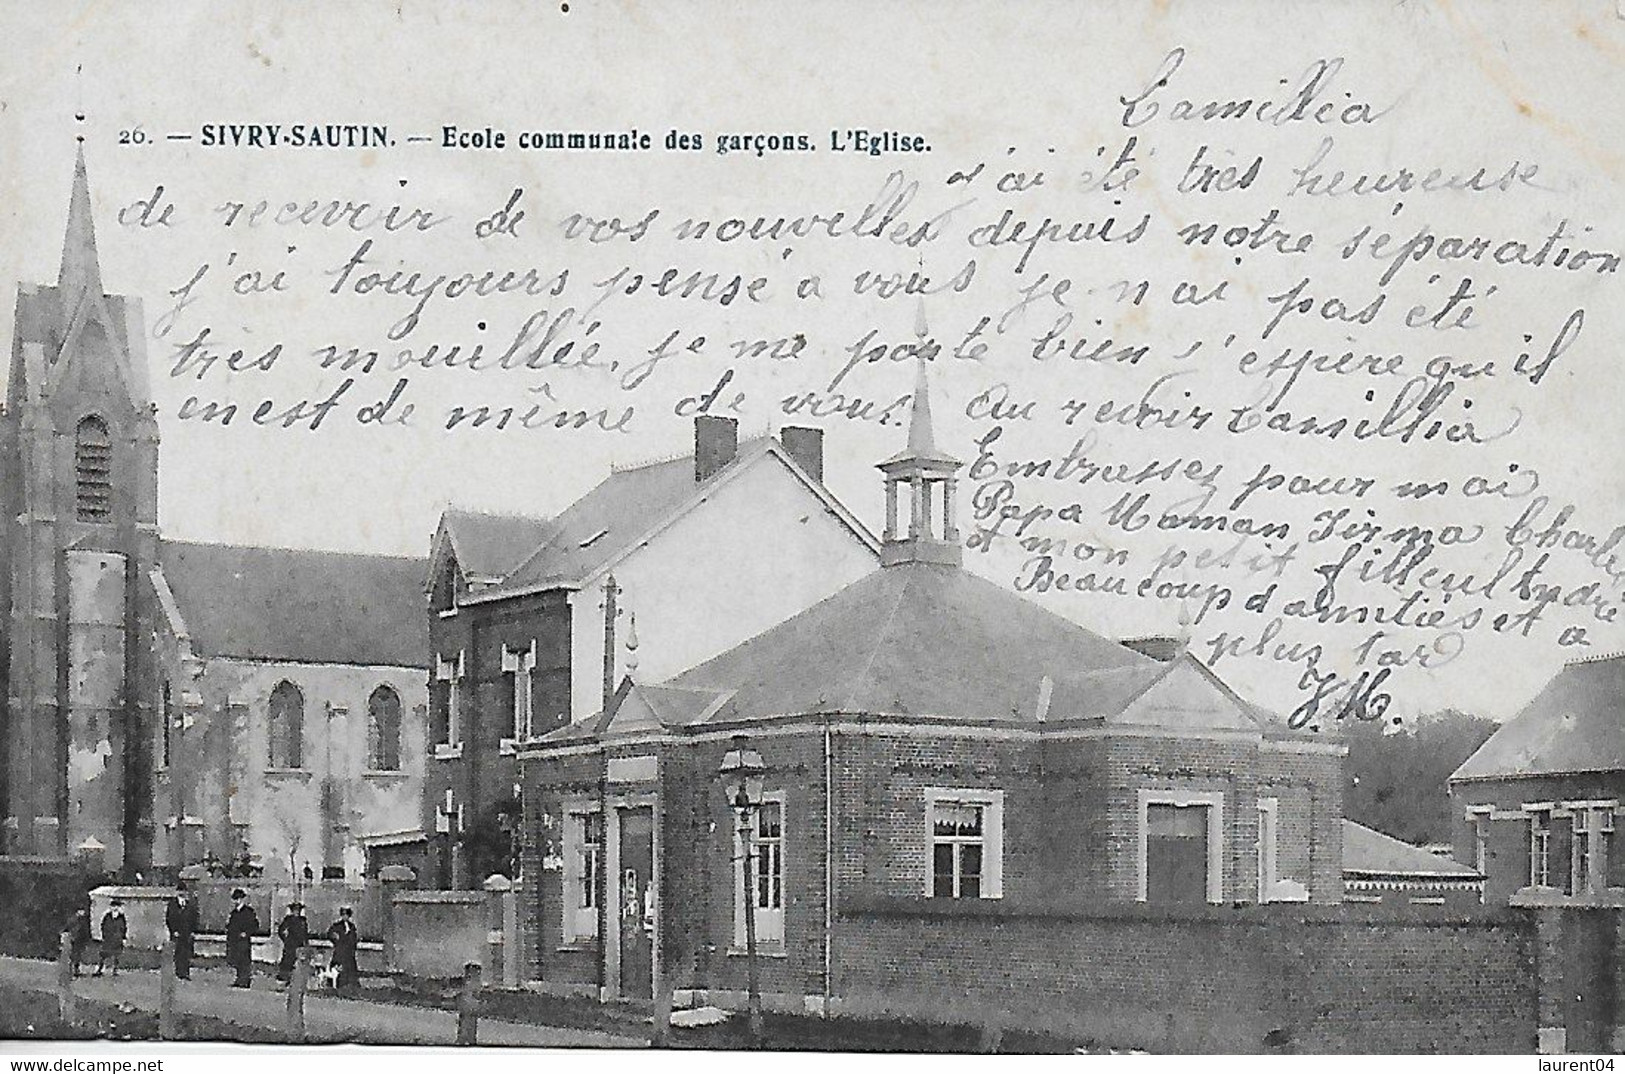 Camillia
26. — SIVRY-SAUTIN. — Ecole communale des garçons. L'Eglise.
J'ai été très heureuse
de recevoir de vos nouvelles depuis notre séparation
j'ai toujours pensé a vous je n'ai pas été
très mouillée, je me porte bien j'espère qu'il
en est de même de vous. Au revoir Camillia
Embrasses pour moi
Papa Maman Irma Charles
et mon petit filleul Andre
Beaucoup d'amitiés et a
plus tard
J M.
laurent04